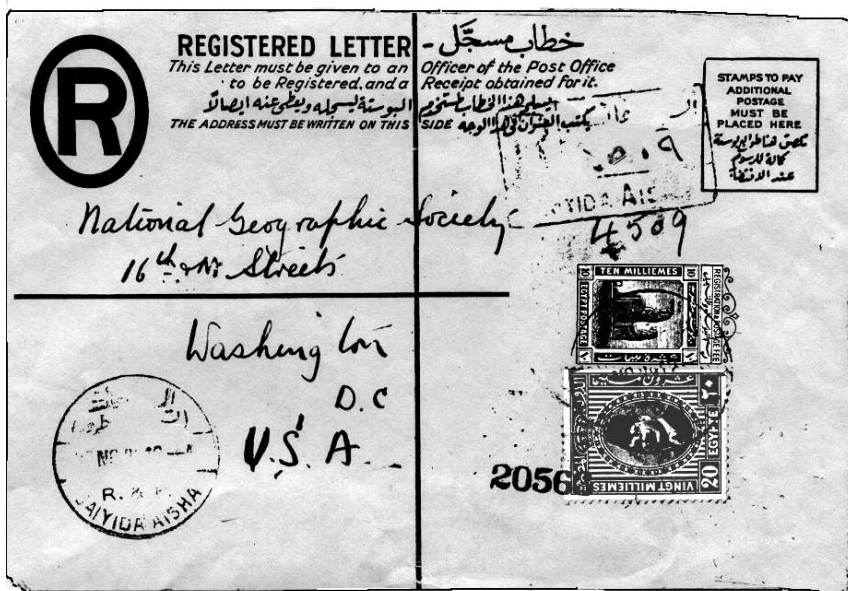 REGISTERED LETTER - خطاب مسجّل
This Letter must be given to an Officer of the Post Office
to be Registered, and a Receipt obtained for it.
ليسلم هذا الخطاب لمستخدم البوستة ليسجله ويعطى عنه ايصالاً
THE ADDRESS MUST BE WRITTEN ON THIS SIDE يكتب العنوان في هذا الوجه
R
STAMPS TO PAY
ADDITIONAL
POSTAGE
MUST BE
PLACED HERE
تلصق هنا طوابع بوستة
عند الاقتضاء
٤٥٠٩
AIS
4509
National Geographic Society
16th & M Streets
Washington
D.C
U.S.A
TEN MILLIEMES
10
10
EGYPT POSTAGE
REGISTRATION & POSTAGE FEE
عشرة مليمات
عشرون مليما
٢٠
EGYPTE
20
VINGT MILLIEMES
2056
R.
SAIYIDA AISHA